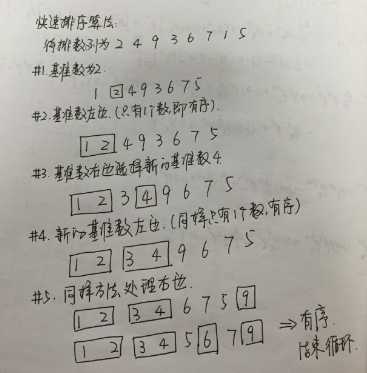 快速排序算法:
待排数列为 2 4 9 3 6 7 1 5
#1.基准数为2.
1 2 4 9 3 6 7 5
#2.基准数左边.(只有1个数,即有序).
1 2 4 9 3 6 7 5
#3.基准数右边选择新的基准数4.
1 2 3 4 9 6 7 5
#4.新的基准数左边.(同样只有1个数,有序)
1 2 3 4 9 6 7 5
#5.同样方法处理右边.
1 2 3 4 6 7 5 9
1 2 3 4 5 6 7 9 ⇒ 有序.
结束循环.